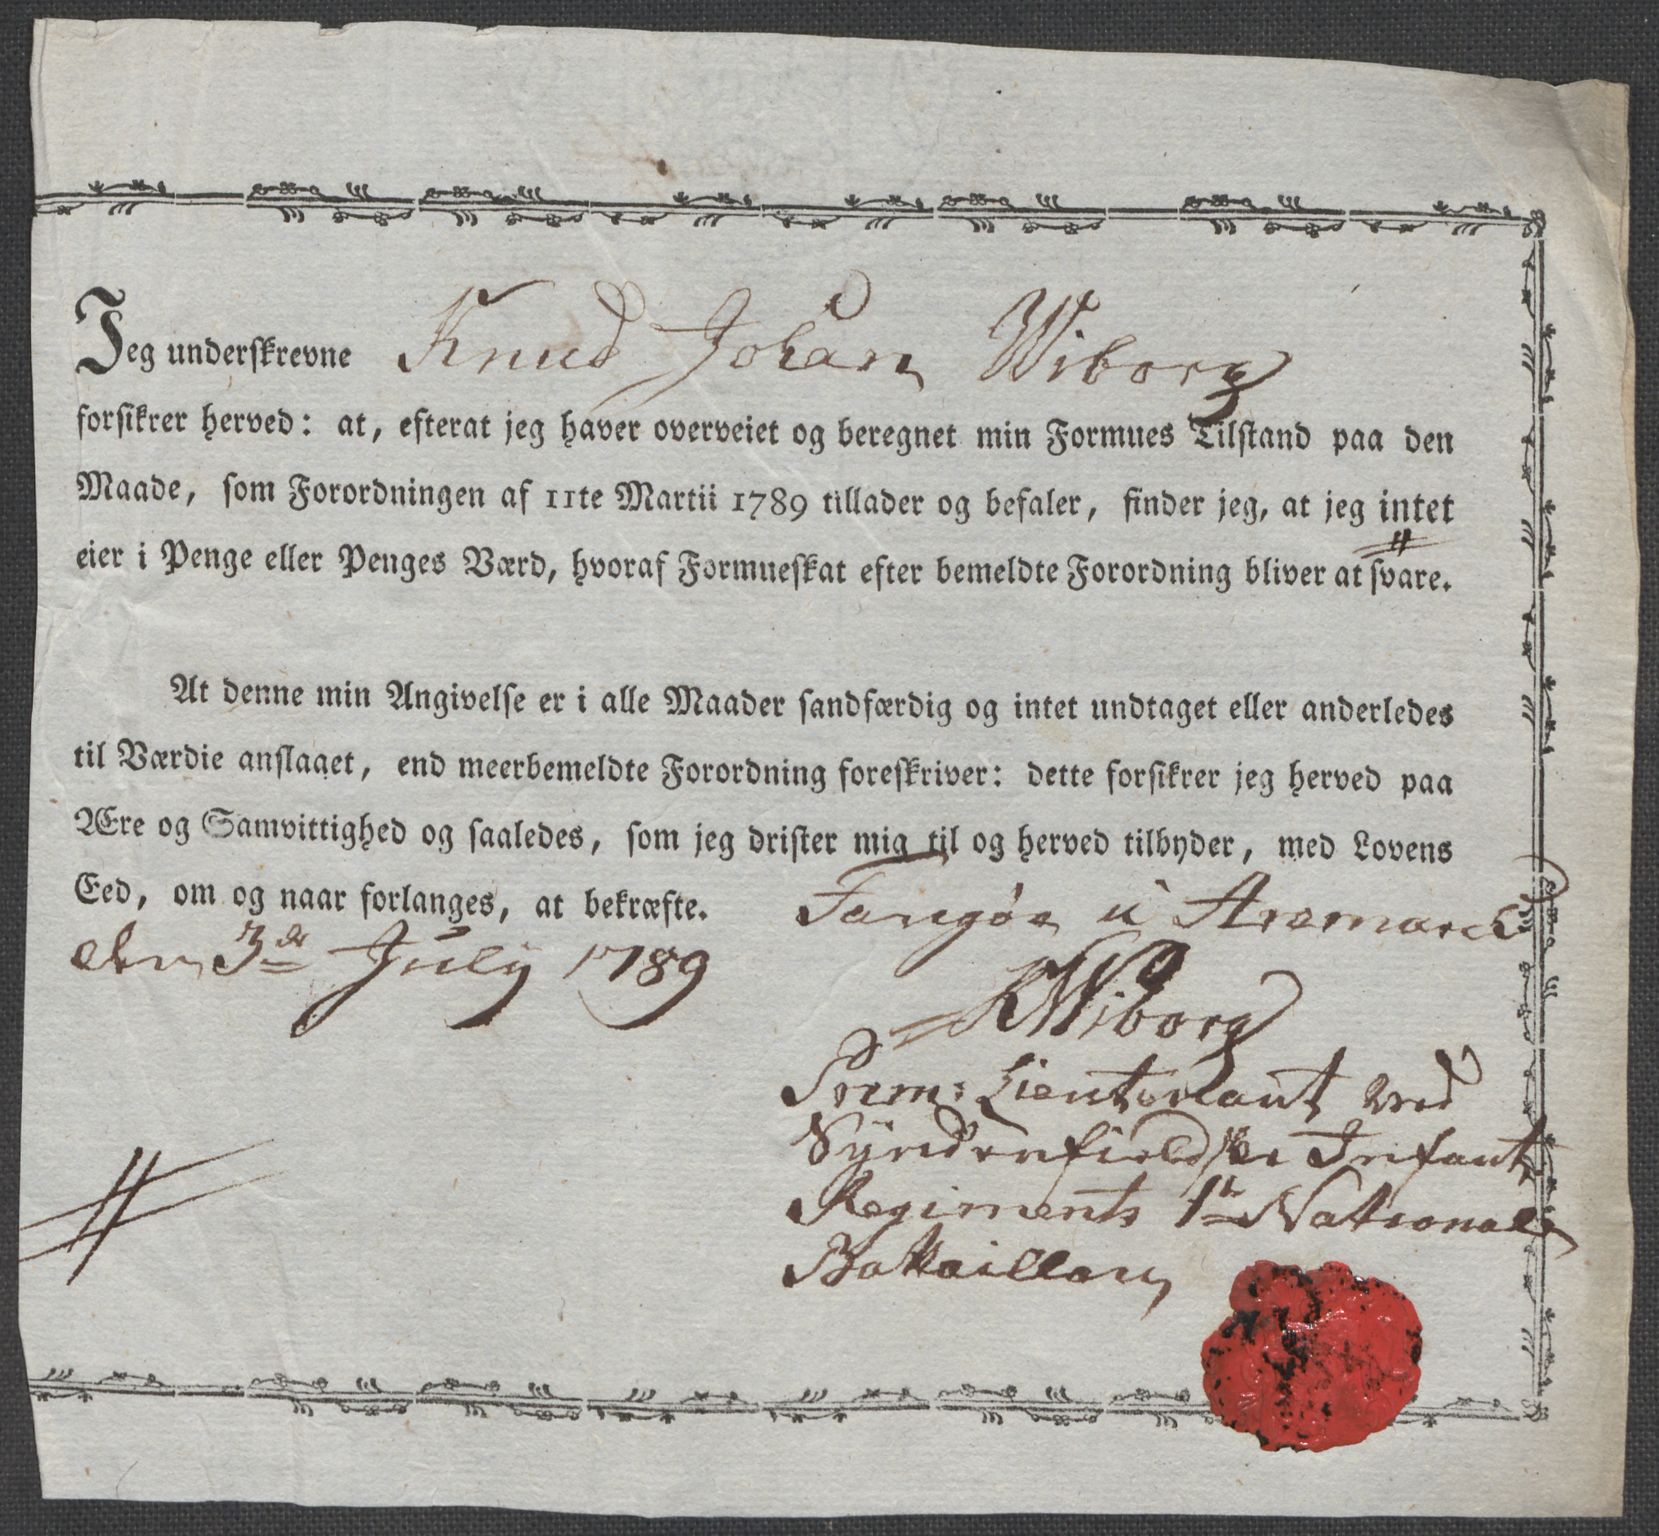 Jeg underskrevne Knud Johan Wiborg
forsikrer herved: at, efterat jeg haver overveiet og beregnet min Formues Tilstand paa den
Maade, som Forordningen af 11te Martii 1789 tillader og befaler, finder jeg, at jeg intet
eier i Penge eller Penges Værd, hvoraf Formueskat efter bemeldte Forordning bliver at svare.
At denne min Angivelse er i alle Maader sandfærdig og intet undtaget eller anderledes
til Værdie anslaget, end meerbemeldte Forordning foreskriver: dette forsikrer jeg herved paa
Ære og Samvittighed og saaledes, som jeg drister mig til og herved tilbyder, med Lovens
Eed, om og naar forlanges, at bekræfte. Tangøe i Aremarck
den 3de July 1789
KWiborg
Prem: Lieutenant ved
Syndenfieldske Infant
Regiments 1te Nationale
Battaillon